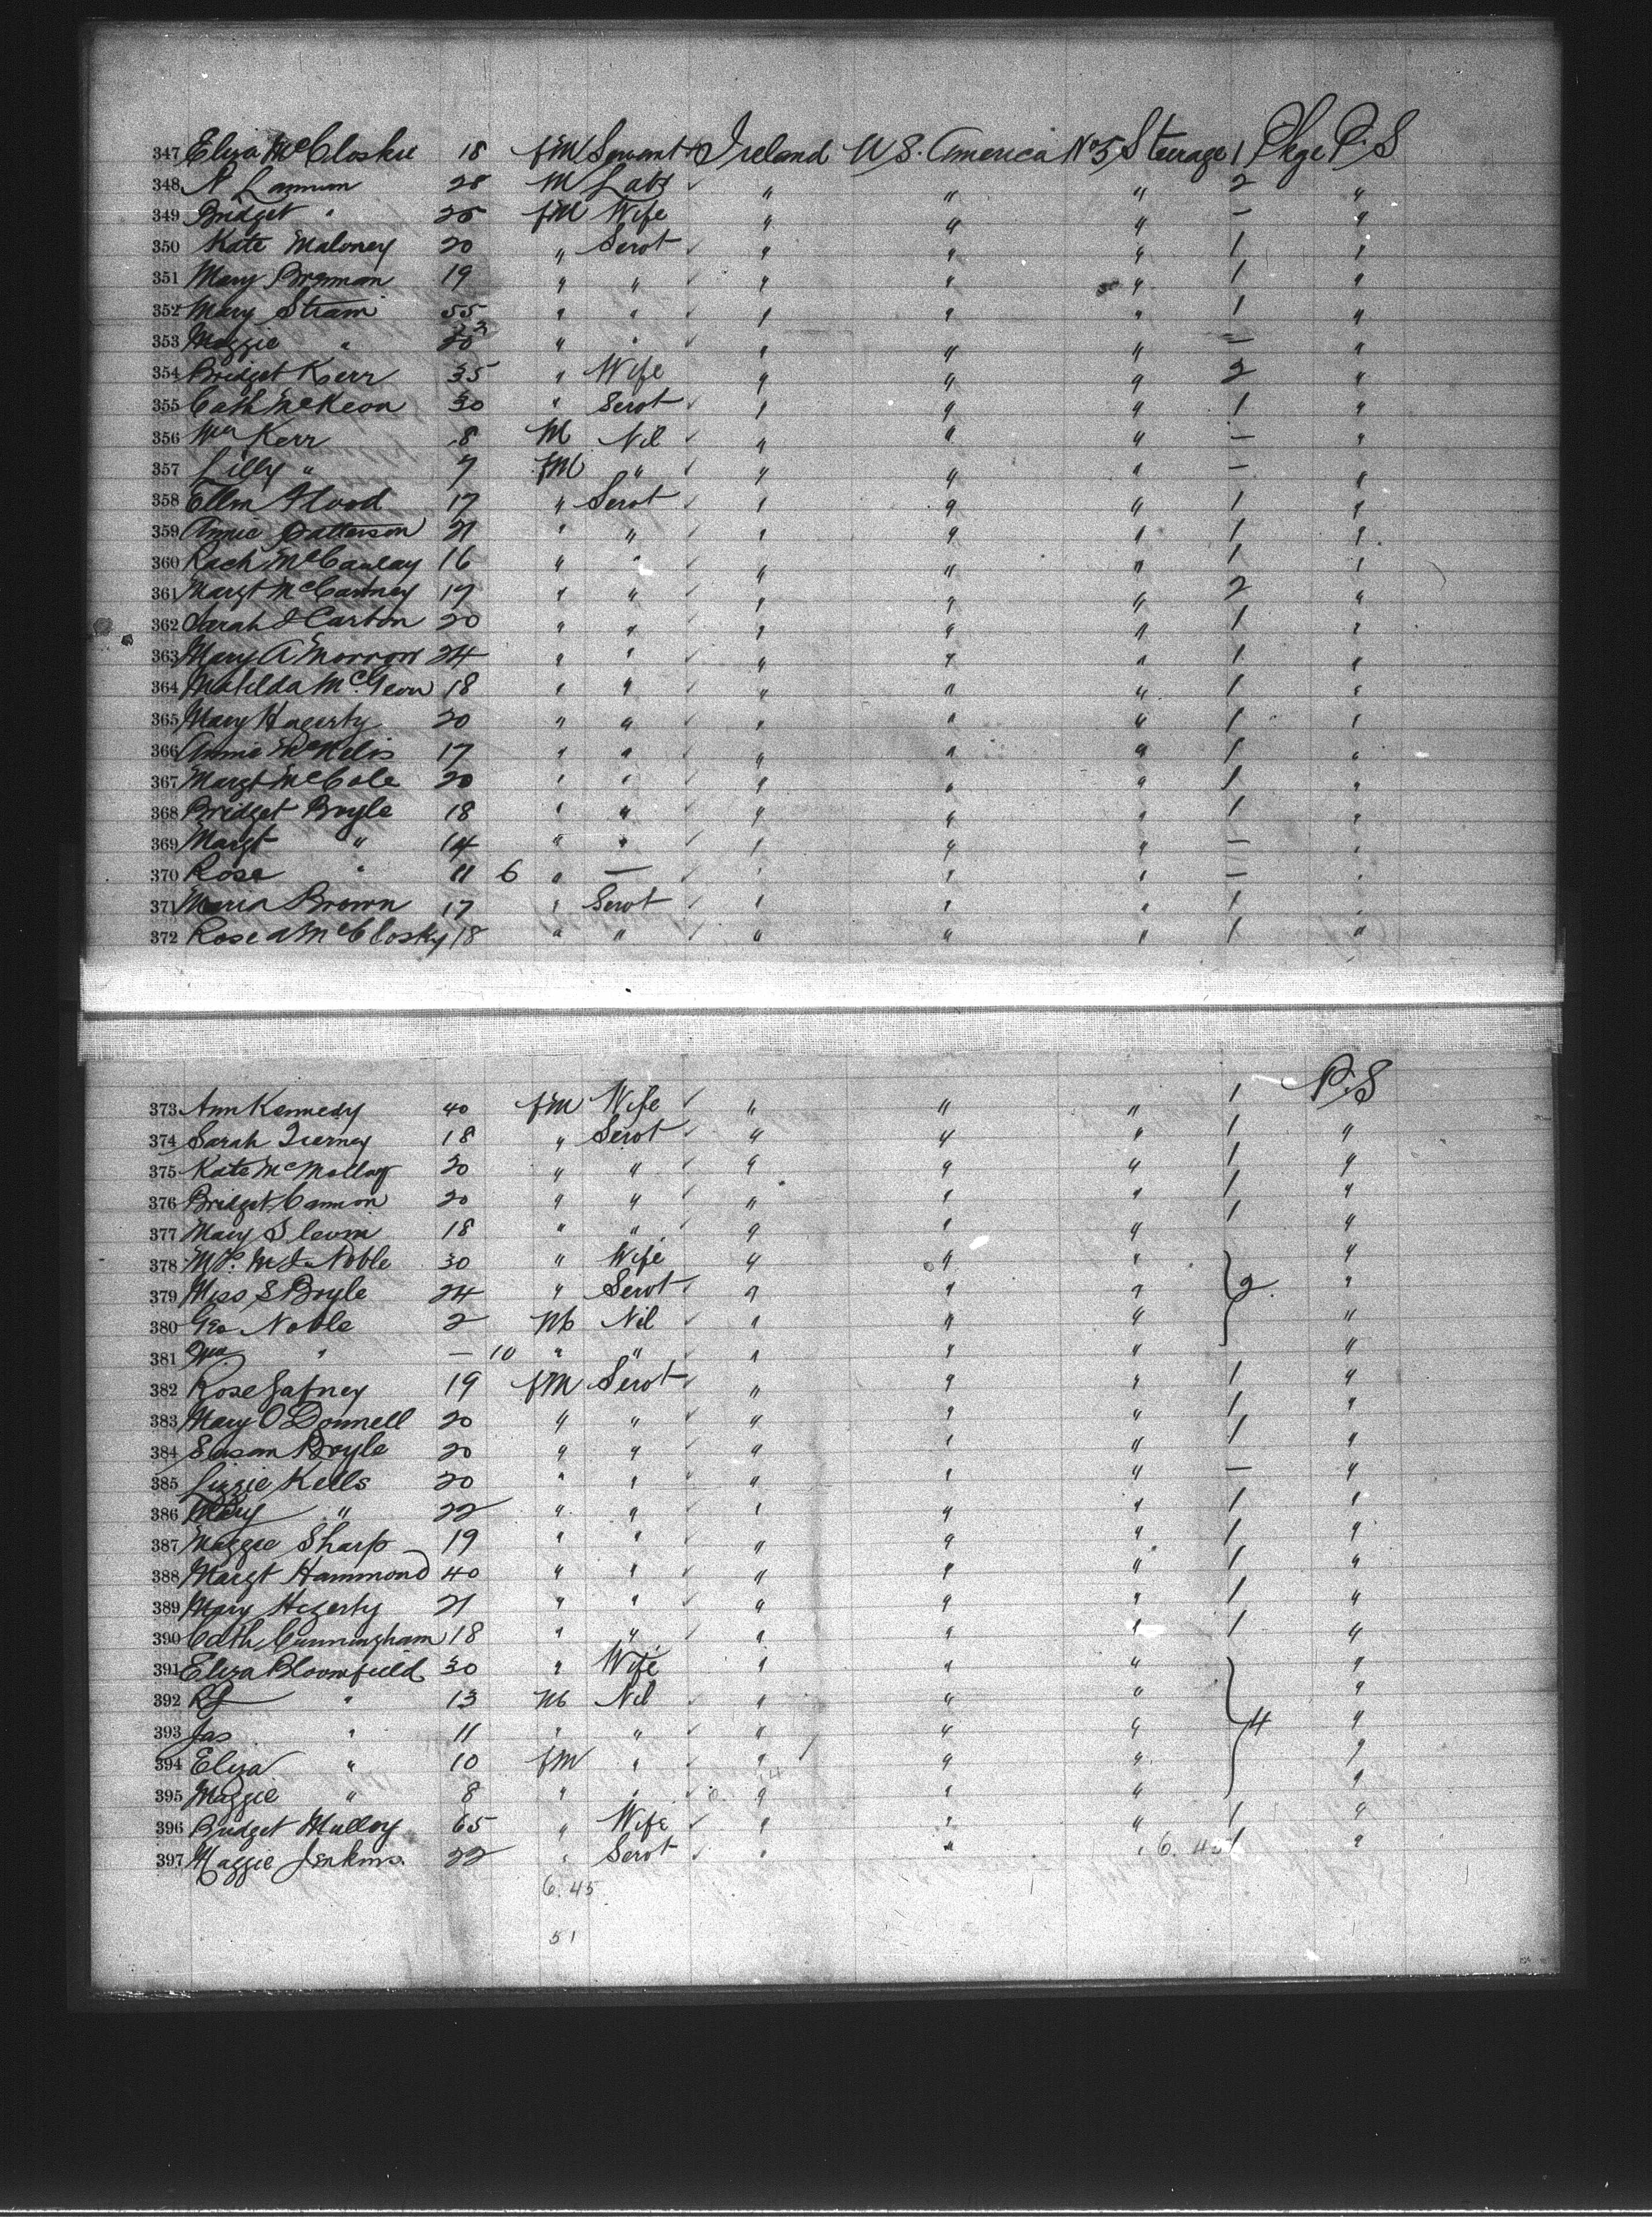 347 Eliza McCloskie 18 fm Servant Ireland U S. America No 5 Steerage 1 Pkge P.S
348 P Lannum 28 m Labr " " " 2 "
349 Bridget " 25 fm Wife " " " — "
350 Kate Maloney 20 " Servt " " " 1 "
351 Mary Brennan 19 " " " " " 1 "
352 Mary Strain 55 " " " " " 1 "
353 Maggie " " " " " " — "
354 Bridget Kerr 35 " Wife " " " 2 "
355 Cath McKeon 30 " Servt " " " 1 "
356 Wm Kerr 8 M Nil " " " — "
357 Lilly " 7 fm " " " " — "
358 Ellen Flood 17 " Servt " " " 1 "
359 Annie Patterson 21 " " " " " 1 "
360 Rach McCaulay 16 " " " " " 1 "
361 Margt McCartney 17 " " " " " 2 "
362 Sarah J Carton 20 " " " " " 1 "
363 Mary A Morrow 24 " " " " " 1 "
364 Matilda McGeon 18 " " " " " 1 "
365 Mary Hagerty 20 " " " " " 1 "
366 Annie McNelis 17 " " " " " 1 "
367 Margt McCole 20 " " " " " 1 "
368 Bridget Boyle 18 " " " " " 1 "
369 Margt " 14 " " " " " — "
370 Rose " 11 6 " — " " " — "
371 Maria Brown 17 " Servt " " " 1 "
372 Rose A McClosky 18 " " " " " 1 "
373 Ann Kennedy 40 fm Wife " " " 1 P.S
374 Sarah Tierney 18 " Servt " " " 1 "
375 Kate McMolloy 20 " " " " " 1 "
376 Bridget Cannon 20 " " " " " 1 "
377 Mary Slevin 18 " " " " " 1 "
378 Noble 30 " Wife " " " "
379 Miss S Boyle 24 " Servt " " " 2 "
380 Geo Noble 2 M Nil " " " "
381 Wm " — 10 " " " " " "
382 Rose Gafney 19 fm Servt " " " 1 "
383 Mary O Donnell 20 " " " " " 1 "
384 Susan Boyle 20 " " " " " 1 "
385 Lizzie Kells 20 " " " " " — "
386 Mary " 22 " " " " " 1 "
387 Maggie Sharp 19 " " " " " 1 "
388 Margt Hammond 40 " " " " " 1 "
389 Mary Hegerty 21 " " " " " 1 "
390 Cath Cunningham 18 " " " " " 1 "
391 Eliza Bloomfield 30 " Wife " " " "
392 " 13 M Nil " " " "
393 Jas " 11 " " " " " 4 "
394 Eliza " 10 fm " " " " "
395 Maggie " 8 " " " " " "
396 Bridget Mulloy 65 " Wife " " " 1 "
397 Maggie Jenkins 22 " Servt " " " 6. 45 1 "
6. 45
51